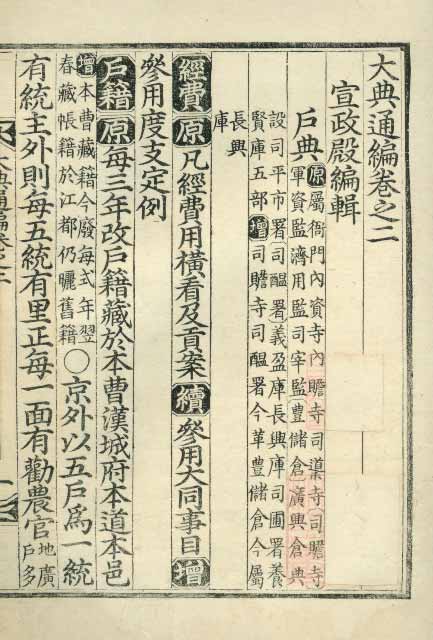 大典通編卷之二
宣政殿編輯
戶典 原 屬衙門內資寺內贍寺司䆃寺司贍寺
軍資監濟用監司宰監豊儲倉廣興倉典
設司平市署司醞署義盈庫長興庫司圃署養
賢庫五部 增 司贍寺司醞署今革豊儲倉今屬
長興
庫
經費 原 凡經費用橫看及貢案 續 參用大同事目 增
參用度支定例
戶籍 原 每三年改戶籍藏於本曹漢城府本道本邑
增 本曹藏籍今廢每式年翌
春藏帳籍於江都仍曬舊籍
○京外以五戶爲一統
有統主外則每五統有里正每一面有勸農官 地廣
戶多
大典通編卷之二